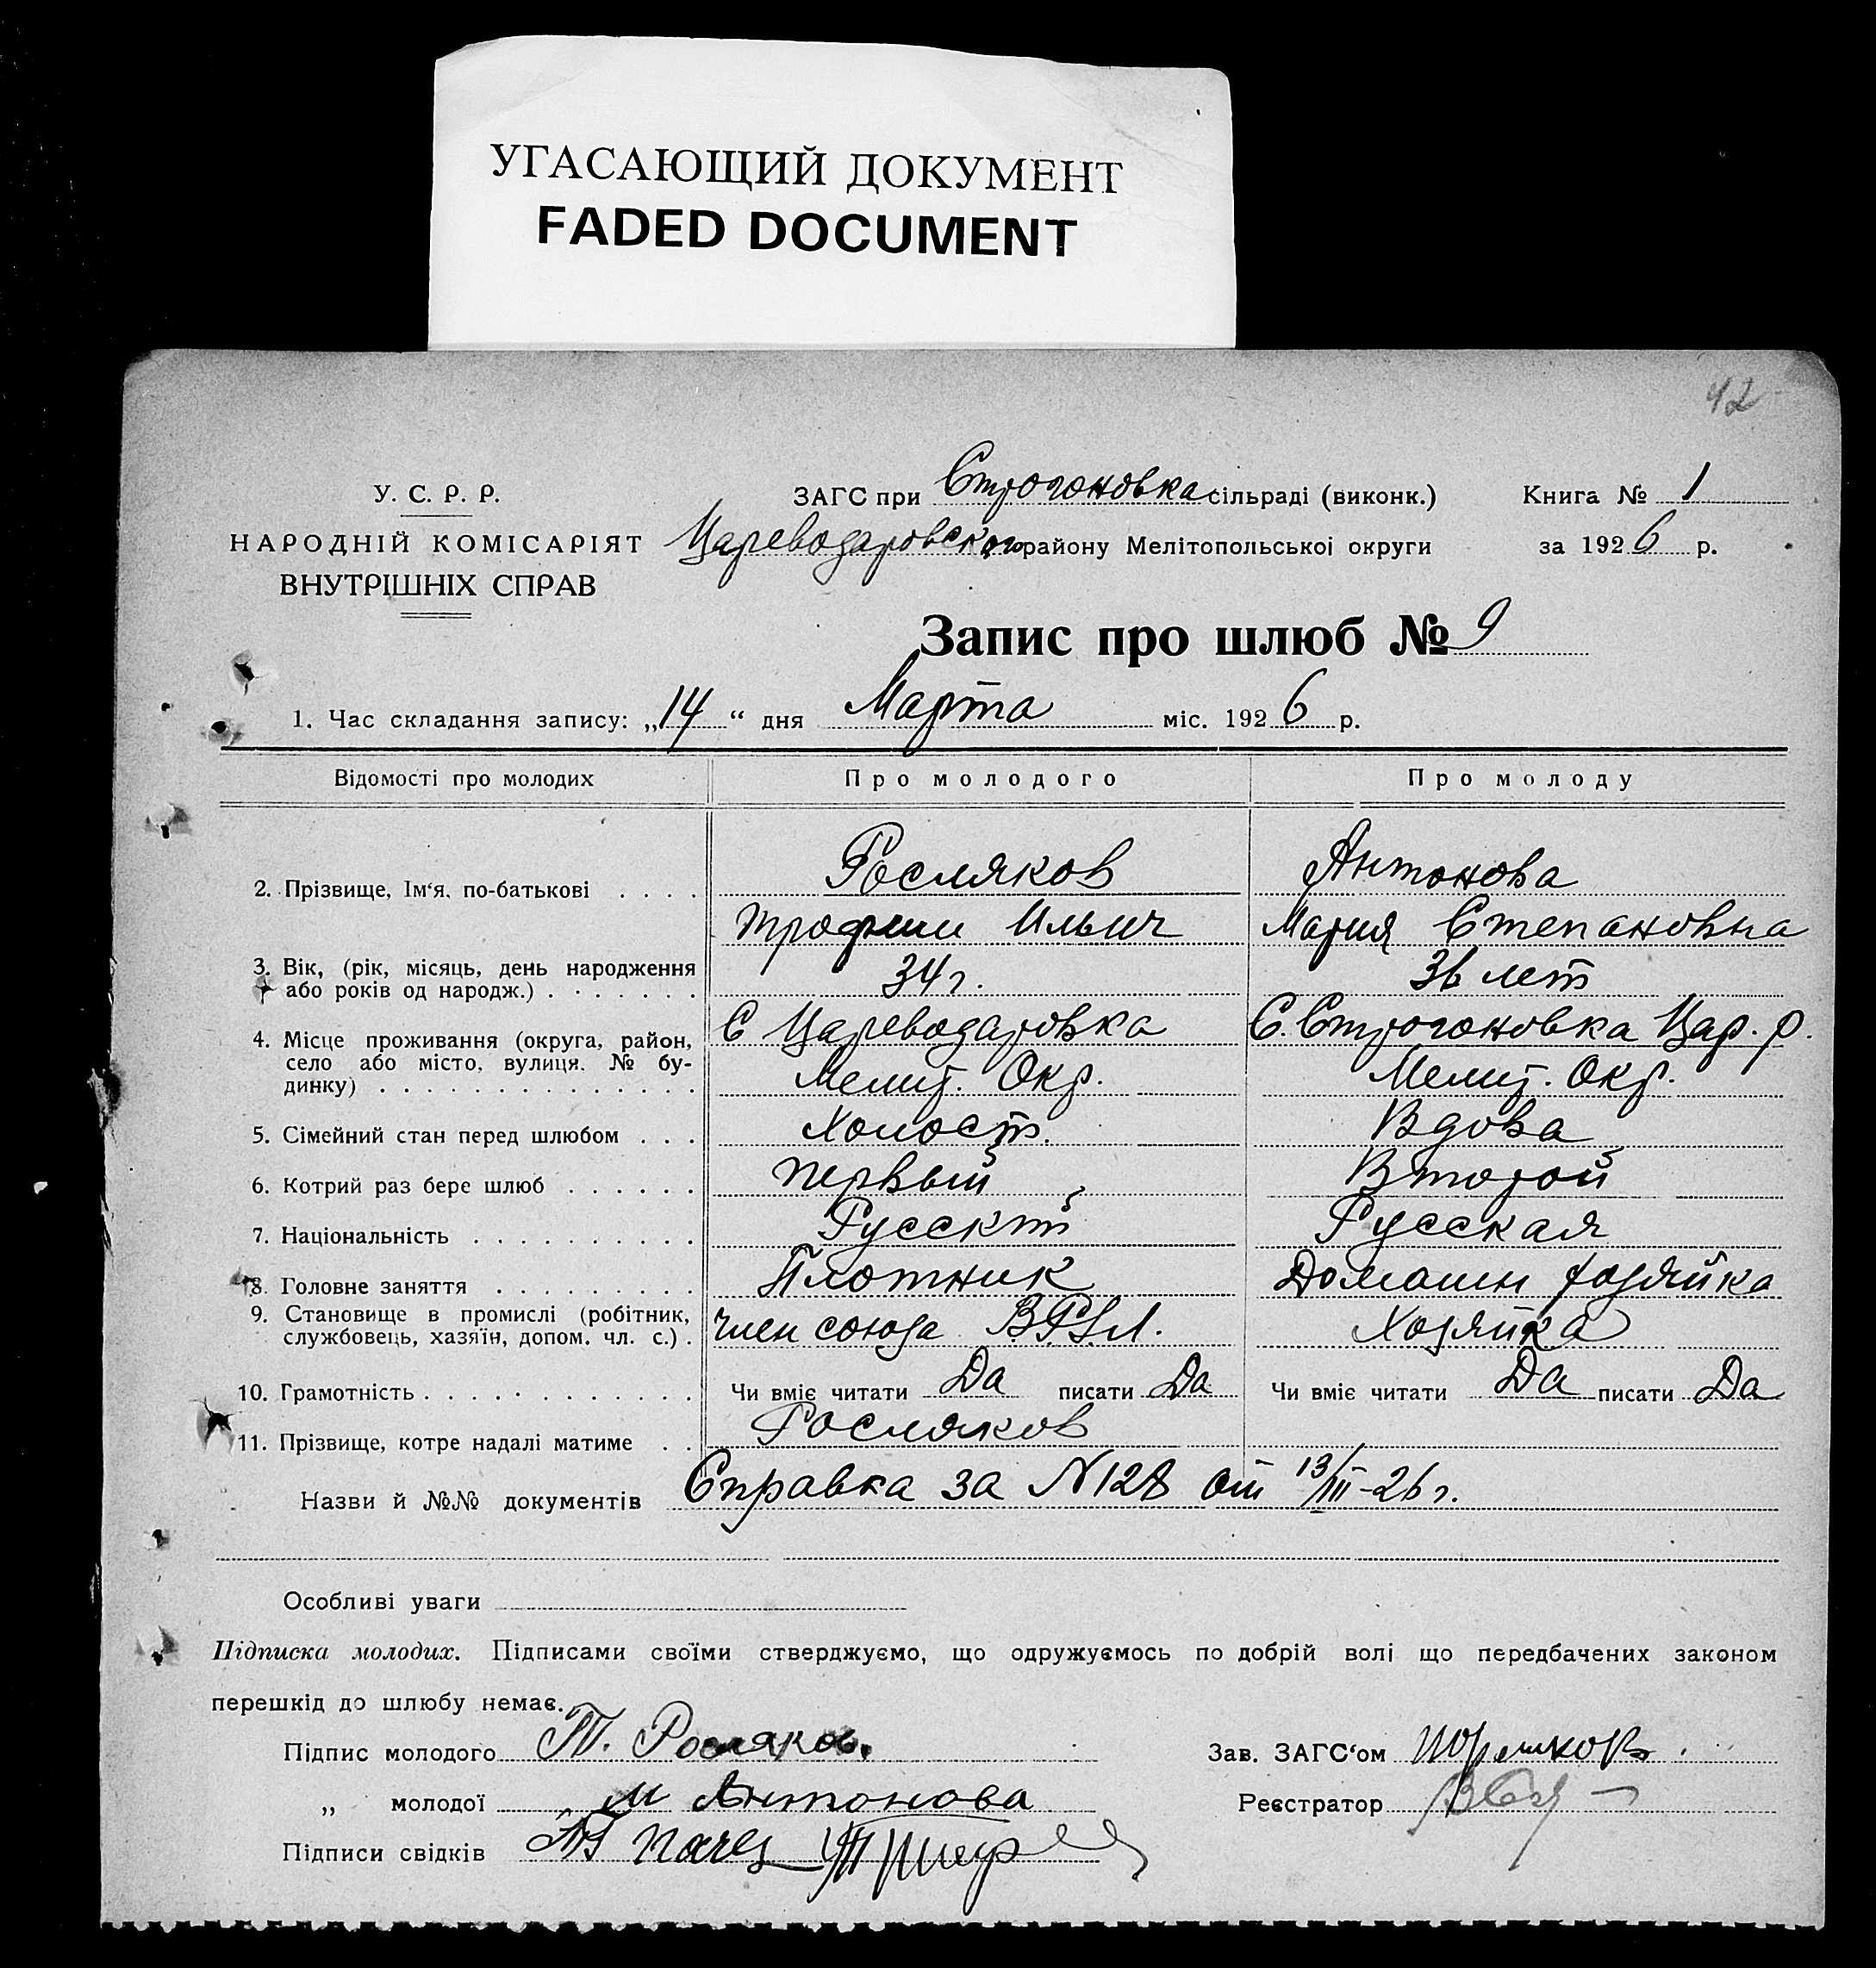 УГАСАЮЩИЙ ДОКУМЕНТ
FADED DOCUMENT
42
У. С. Р. Р.
НАРОДНІЙ КОМІСАРІЯТ
ВНУТРІШНІХ СПРАВ
ЗАГС при Строгоновка сільраді (виконк.)
Цареводаровского району Мелітопольської округи
Книга № 1
за 1926 р.
Запис про шлюб № 9
1. Час складання запису: „14“ дня Марта міс. 1926 р.
Відомості про молодих Про молодого Про молоду
2. Прізвище, Ім'я, по-батькові . . . . Росляков Антонова
Трофим Ильич Мария Степановна
3. Вік, (рік, місяць, день народження або років од народж.) . . . . . . . 34 г. 36 лет
4. Місце проживання (округа, район, село або місто, вулиця, № будинку) . . . . . . . . . . . . . С Цареводаровка С. Строгоновка Цар. р.
Мелит. Окр. Мелит. Окр.
5. Сімейний стан перед шлюбом . . . Холост. Вдова
6. Котрий раз бере шлюб . . . . . . Первый Второй
7. Національність . . . . . . . . . . Русский Русская
8. Головне заняття . . . . . . . . . Плотник Домашн хозяйка
9. Становище в промислі (робітник, службовець, хазяїн, допом. чл. с.) . член союза Хозяйка
10. Грамотність . . . . . . . . . . . . Чи вміє читати Да писати Да Чи вміє читати Да писати Да
11. Прізвище, котре надалі матиме . . Росляков
Назви й №№ документів Справка за N 128 от 13/III-26 г.
Особливі уваги
Підписка молодих. Підписами своїми стверджуємо, що одружуємось по добрій волі що передбачених законом
перешкід до шлюбу немає.
Підпис молодого Т. Росляков. Зав. ЗАГС'ом
„ молодої М Антонова Реєстратор
Підписи свідків